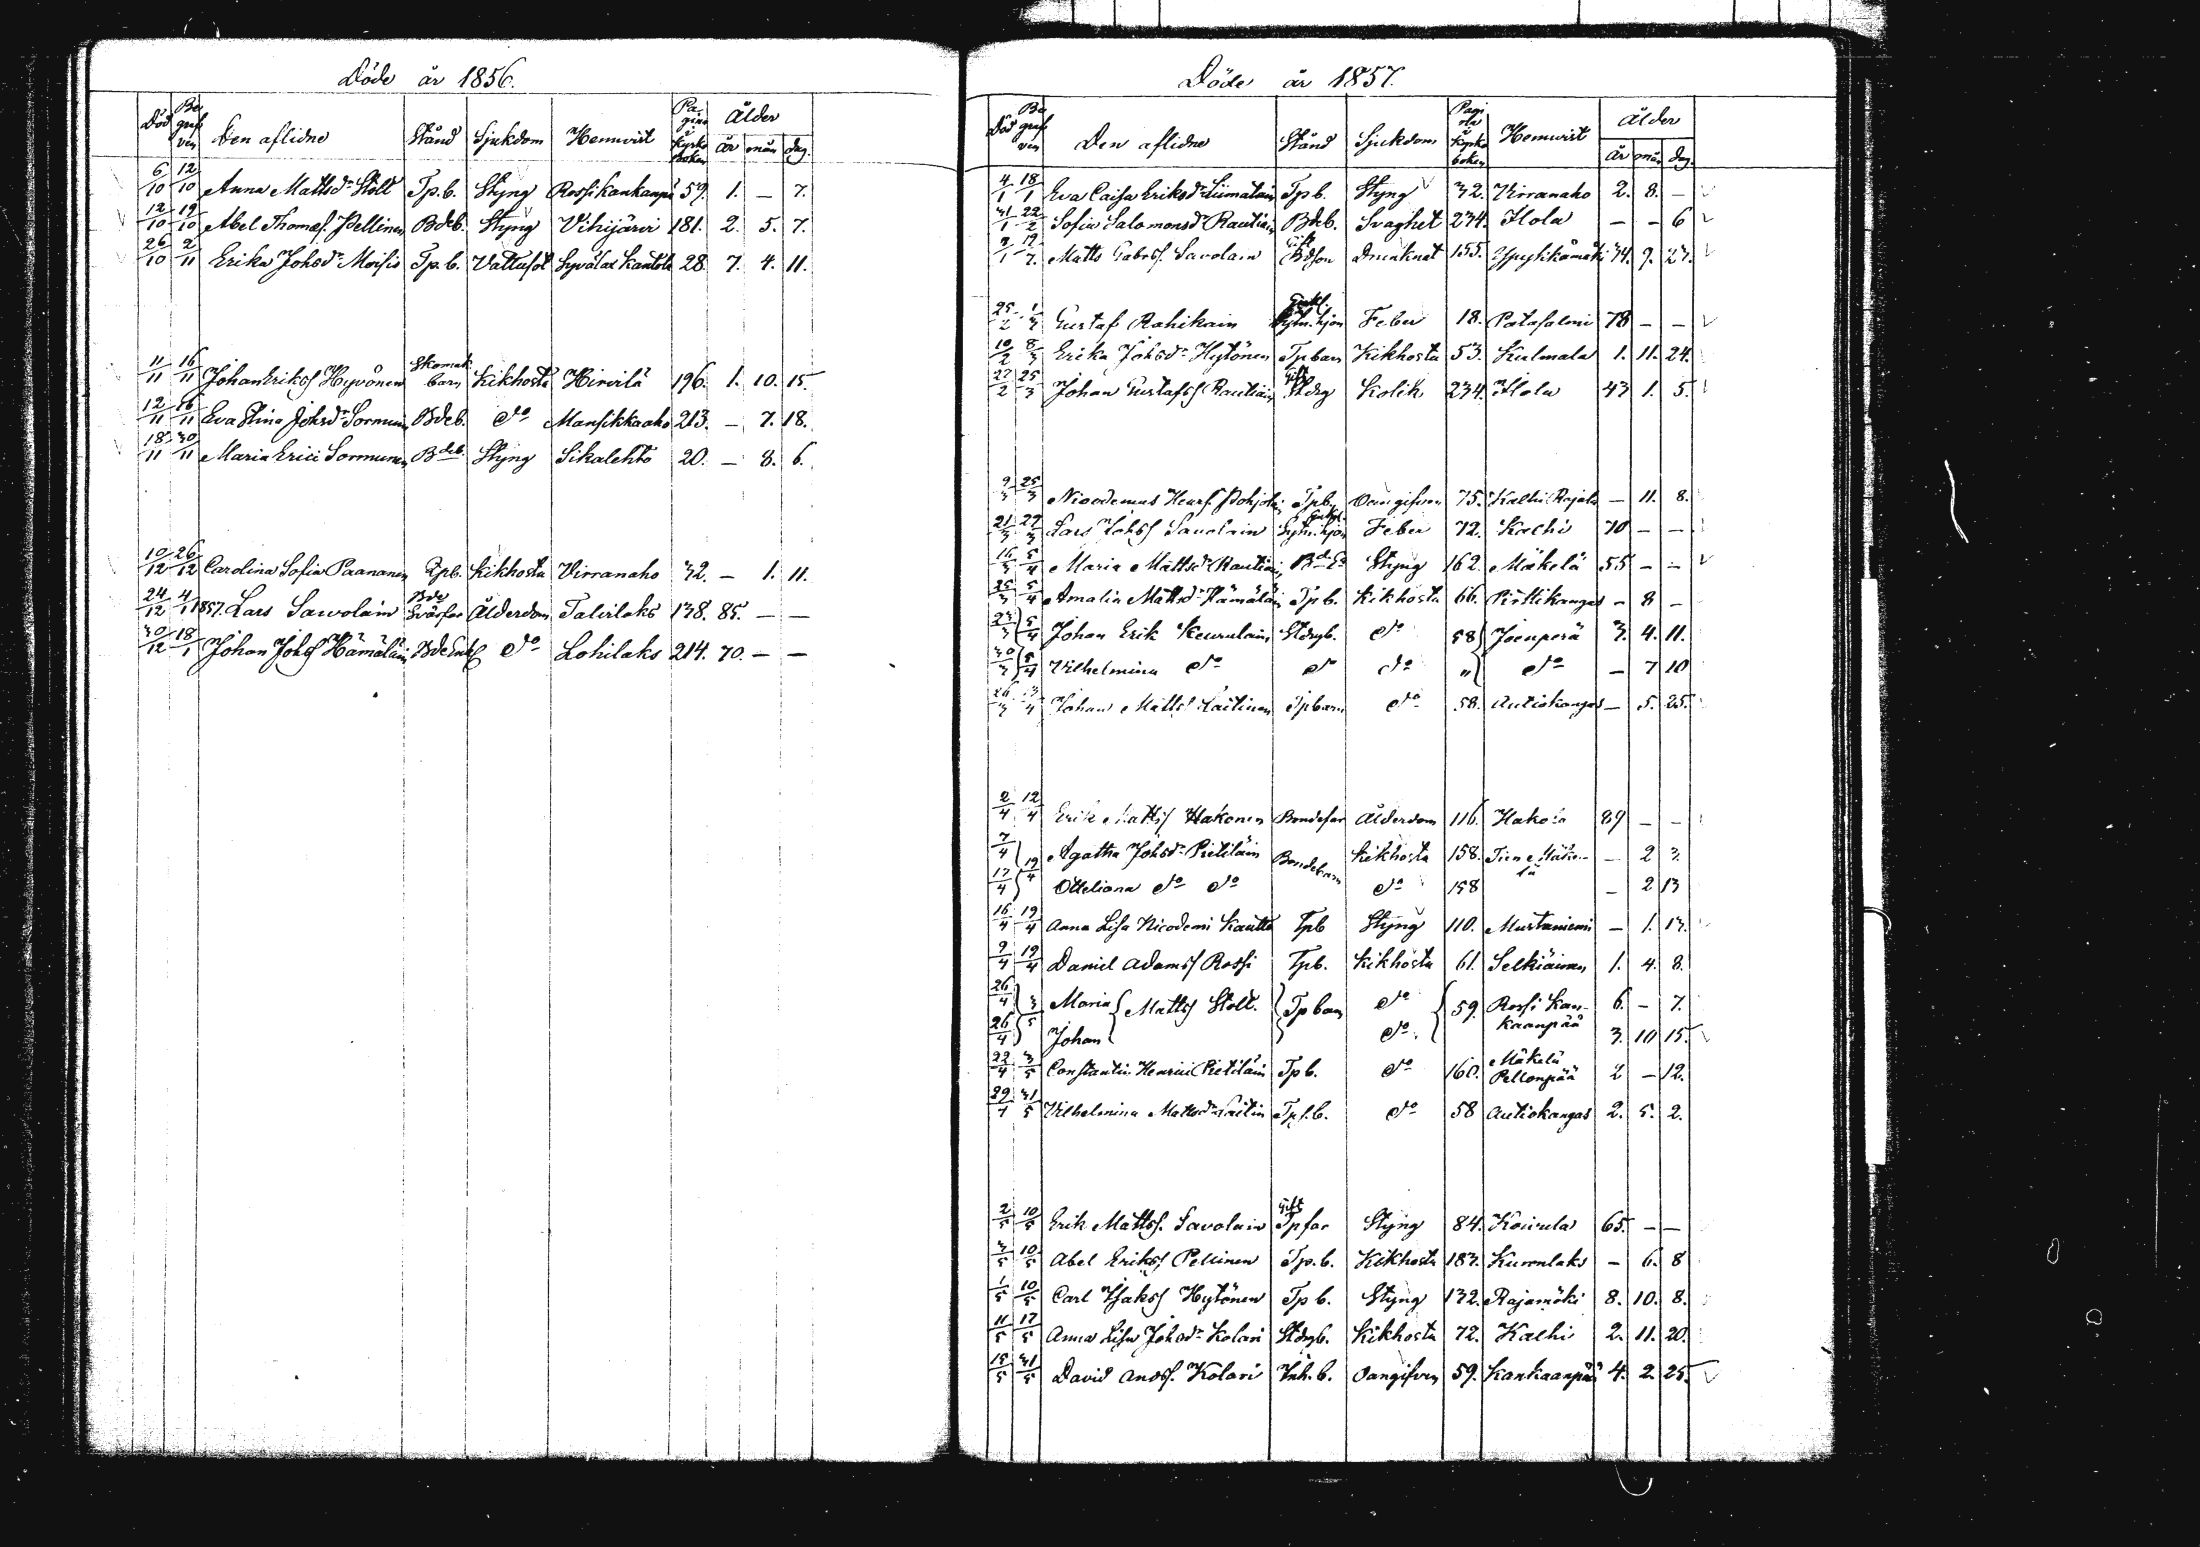 Döde år 1856.
Död Be graf ven Den aflidne Stånd Sjukdom Hemvist Pa- gina Kyrko boken Ålder år mån dag.
6/10 12/10 Anna Mattsdr Stolt Tp.b. Styng Rossi Kankanpä 59. 1. — 7.
12/10 19/10 Abel Thomas. Pellinen Bdeb. Styng Vihijärvi 181. 2. 5. 7.
26/10 2/11 Erika Johsdr Moisio Tp.b. Vattusot Syvälax Kantola 28 7. 4. 11.
11/11 16/11 Johan Eriks Hyvönen Skomak barn Kikhosta Hirvilä 196. 1. 10. 15.
12/11 16/11 Eva Stina Johsdr Sormunen Bdeb. do Mansikkaaho 213. — 7. 18.
18/11 30/11 Maria Erici Sormunen Bdeb. Styng Sikalehto 20. — 8. 6.
10/12 26/12 Carolina Sofia Paananen Tpb. Kikhosta Virranaho 32. — 1. 11.
24/12 4/1 1857. Lars Savolain Bde Svärfar Ålderdom Talvilaks 138. 85. — —
30/12 18/1 Johan Johs Hämäläin Bde do Lohilaks 214. 70. — —
Döde år 1857.
Död Be graf ven Den aflidne Stånd Sjukdom Pagi Kyrko boken Hemvist Ålder År mån dag.
4/1 18/1 Eva Caisa Eriksdr Liimatain Tpb. Styng 32. Virranaho 2. 8. —
31/1 22/2 Sofia Salomonsd Rautiain Bdeb. Svaghet 234. Ilola — — 6
Matts Gabrs Savolain Bdson drunknat 155. 34. 9. 27.
25/2 1/3 Gustaf Rahikain Feber 18. Patasalmi 78 — —
10/2 8/3 Erika Johsdr Hytönen Tpbarn Kikhosta 53. Kulmala 1. 11. 24.
22/2 25/3 Johan Gustafs Rautiain Gift Stdrg Kolik 234. Ilola 43 1. 5.
9/3 25/3 Nicodemus Henrs. Pohjola Tpb. Oangifven 75. Kalhi Rajala — 11. 8.
21/3 29/3 Lars Johs Savolain Feber 72. Kaehi 70 — —
Maria Mattsdr Rautiain Styng 162. Mäkelä 55 — —
25/3 5/4 Amalia Mattsdr Hämäläin Tpb. Kikhosta 66. Pirttikangas — 8 —
23/3 5/4 Johan Erik Keurulain Stdrgb. do 58 Joenperä 3. 4. 11.
30/3 5/4 Vilhelmina do do do " do — 7 10
26/3 13/4 Johan Matts Laitinen Tpbarn do 58. Autiokangas — 5. 25.
2/4 12/4 Erik Matts Hakonen Bondefar Ålderdom 116. Hakola 89 — —
7/4 19/4 Agatha Johsdr Pietiläin Bondebarn Kikhosta 158. Tien Mäke- lä — 2 3.
17/4 Otteliana do do do 158 — 2 13
16/4 19/4 Anna Lisa Nicodemi Kautto Tpb Styng 110. Mustaniemi — 1. 13.
9/4 19/4 Daniel Adams Rossi Tpb. Kikhosta 61. Selkäinen 1. 4. 8.
26/4 3/5 Maria Matts Stolt. Tpbarn do 59. Rossi Kan- kaanpää 6. — 7.
26/4 Johan do. 3. 10 15.
22/4 3/5 Constantin Henrici Pietiläin Tpb. do 160. Mäkelä Pellonpää 2 — 12.
29/4 31/5 Vilhelmina Mattsdr Laitin Tpf.b. do 58 Autiokangas 2. 5. 2.
2/5 10/5 Erik Mattss. Savolain Gift Tpfar Styng 84. Koivula 65. — —
3/5 10/5 Abel Eriks Pellinen Tp.b. Kikhosta 183. Kuronlaks — 6. 8
1/5 10/5 Carl Isaks Hytönen Tp b. Styng 132. Rajamäki 8. 10. 8.
11/5 17/5 Anna Lisa Johsdr Kolari Stdrgb. Kikhosta 72. Kaehi 2. 11. 20.
15/5 31/5 David Ands. Kolari Inh.b. Oangifven 59. Kankaanpää 4. 2. 25.